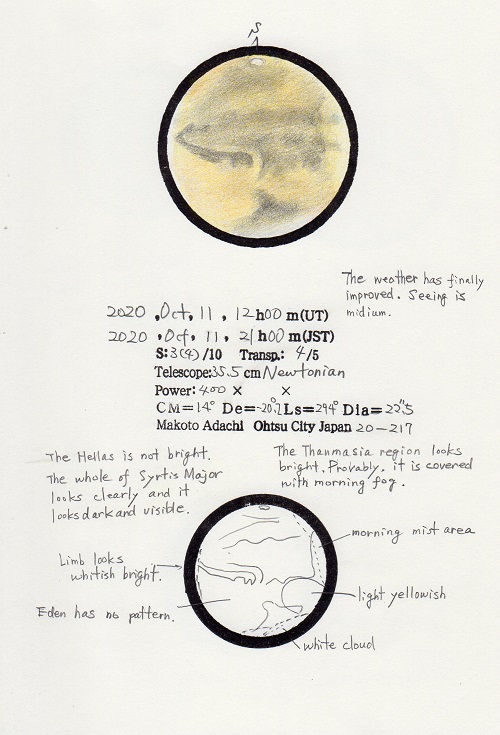 S
The weather has finally
improved. Seeing is
midium.
2020 . Oct. 11 . 12h00 m(UT)
2020 . Oct. 11 . 21h00 m(JST)
S: 3(4) /10 Transp.: 4/5
Telescope:35.5 cm Newtonian
Power: 400 × ×
CM=14° De=-20.°2 Ls=294° Dia=22".5
Makoto Adachi Ohtsu City Japan 20-217
The Hellas is not bright.
The whole of Syrtis Major
looks clearly and it
looks dark and visible.
The Thanmasia region looks
bright. Provably, it is covered
with morning fog.
morning mist area
Limb looks
whitish bright.
light yellowish
Eden has no pattern.
white cloud